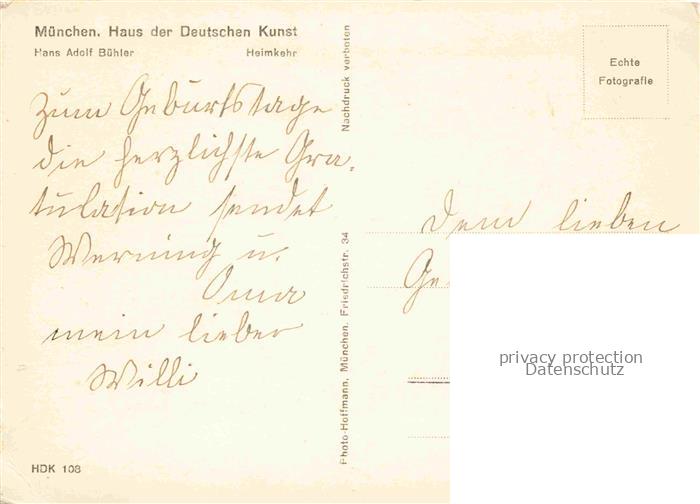 München, Haus der Deutschen Kunst
Hans Adolf Bühler Heimkehr
Zum Geburtstage
die herzlichste Gra-
tulation sendet
Werning u.
Oma
mein lieber
Willi
HDK 108
Nachdruck verboten
Photo-Hoffmann, München, Friedrichstr. 34
Echte
Fotografie
Dem lieben
Ge
privacy protection
Datenschutz